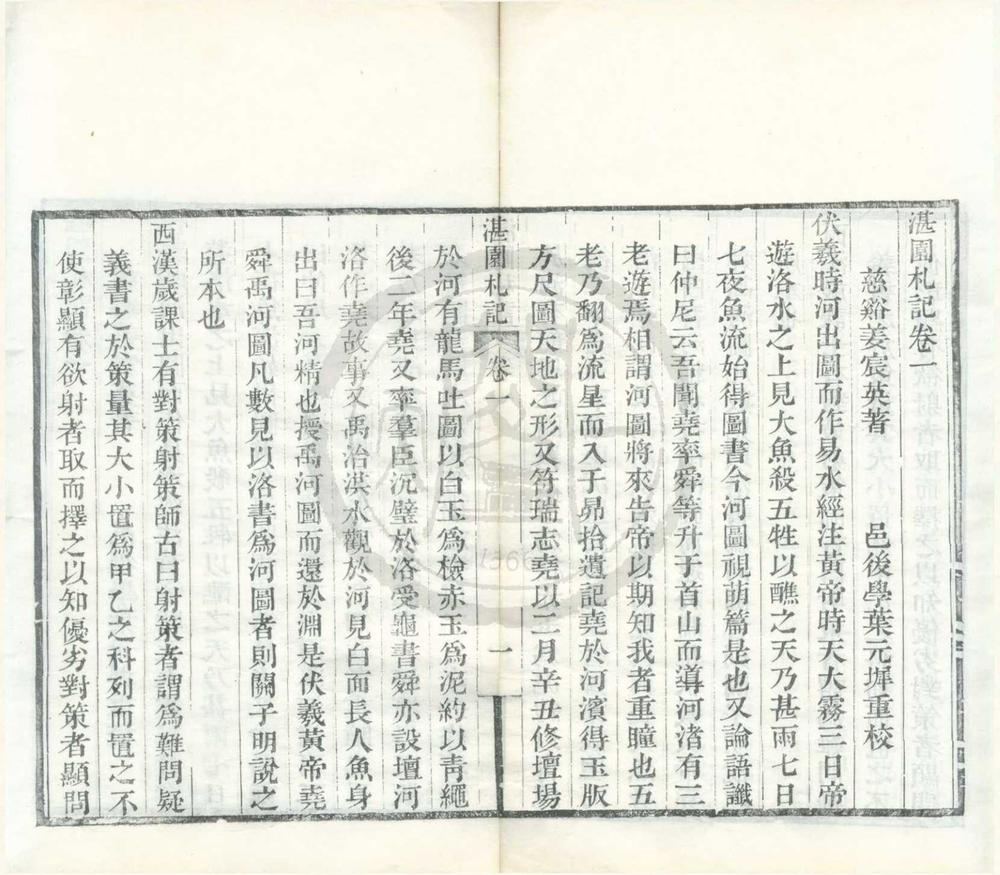 湛園札記卷一
慈谿姜宸英著　邑後學葉元墀重校
伏羲時河出圖而作易水經注黃帝時天大霧三日帝
遊洛水之上見大魚殺五牲以醮之天乃甚雨七日
七夜魚流始得圖書今河圖視萌篇是也又論語讖
曰仲尼云吾聞堯率舜等升于首山而導河渚有三
老遊焉相謂河圖將來告帝以期知我者重瞳也五
老乃翻爲流星而入于昴拾遺記堯於河濱得玉版
方尺圖天地之形又符瑞志堯以二月辛丑修壇場
湛園札記　卷一　一
於河有龍馬吐圖以白玉爲檢赤玉爲泥約以青繩
後二年堯又率羣臣沉璧於洛受龜書舜亦設壇河
洛作堯故事又禹治洪水觀於河見白面長人魚身
出曰吾河精也授禹河圖而還於淵是伏羲黃帝堯
舜禹河圖凡數見以洛書爲河圖者則關子明說之
所本也
西漢歲課士有對策射策師古曰射策者謂爲難問疑
義書之於策量其大小置爲甲乙之科列而置之不
使彰顯有欲射者取而擇之以知優劣對策者顯問
1366